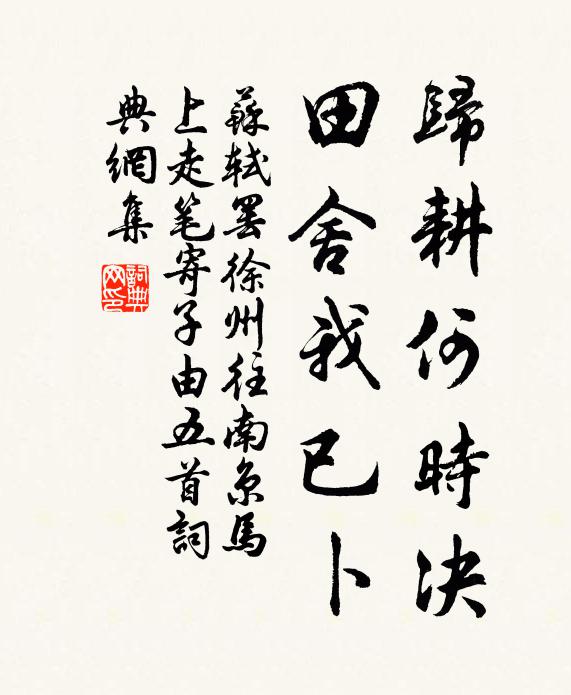 歸耕何時決
田舍我已卜
蘇軾罷徐州往南京馬
上走笔寄子由五首詞
典網集
詞典网印